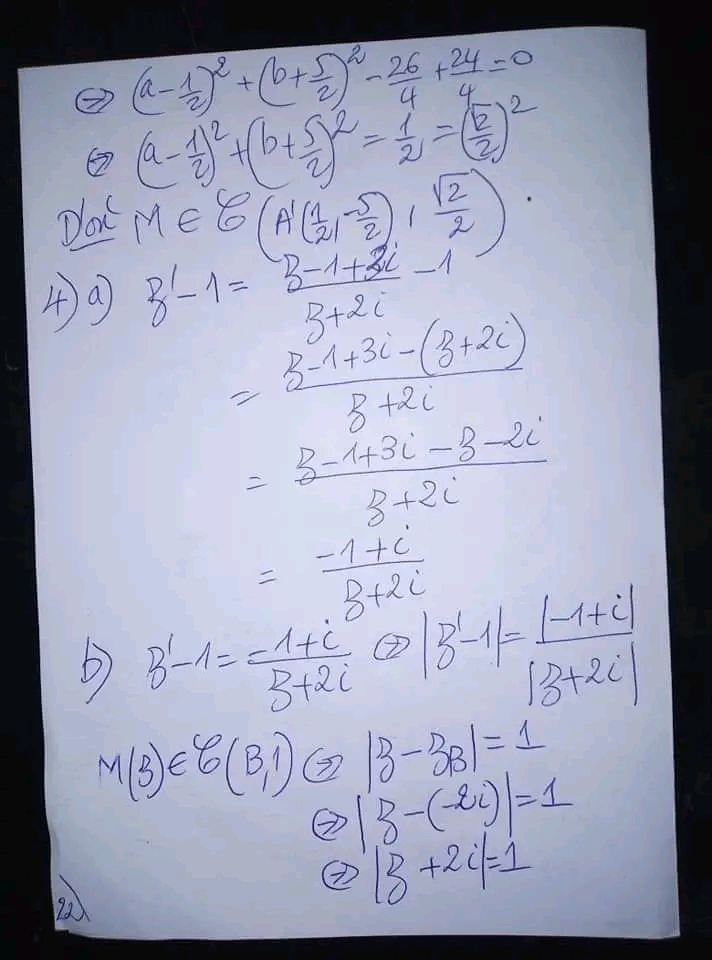 ⇔ (a - 1/2)² + (b + 5/2)² - 26/4 + 24/4 = 0
⇔ (a - 1/2)² + (b + 5/2)² = 1/2 = (√2/2)²
D'où M ∈ C(A'(1/2, -5/2), √2/2).
4) a) z' - 1 = (z - 1 + 3i)/(z + 2i) - 1
= (z - 1 + 3i - (z + 2i))/(z + 2i)
= (z - 1 + 3i - z - 2i)/(z + 2i)
= (-1 + i)/(z + 2i)
b) z' - 1 = (-1 + i)/(z + 2i) ⇔ |z' - 1| = |-1 + i|/|z + 2i|
M(z) ∈ C(B, 1) ⇔ |z - z_B| = 1
⇔ |z - (-2i)| = 1
⇔ |z + 2i| = 1
22)